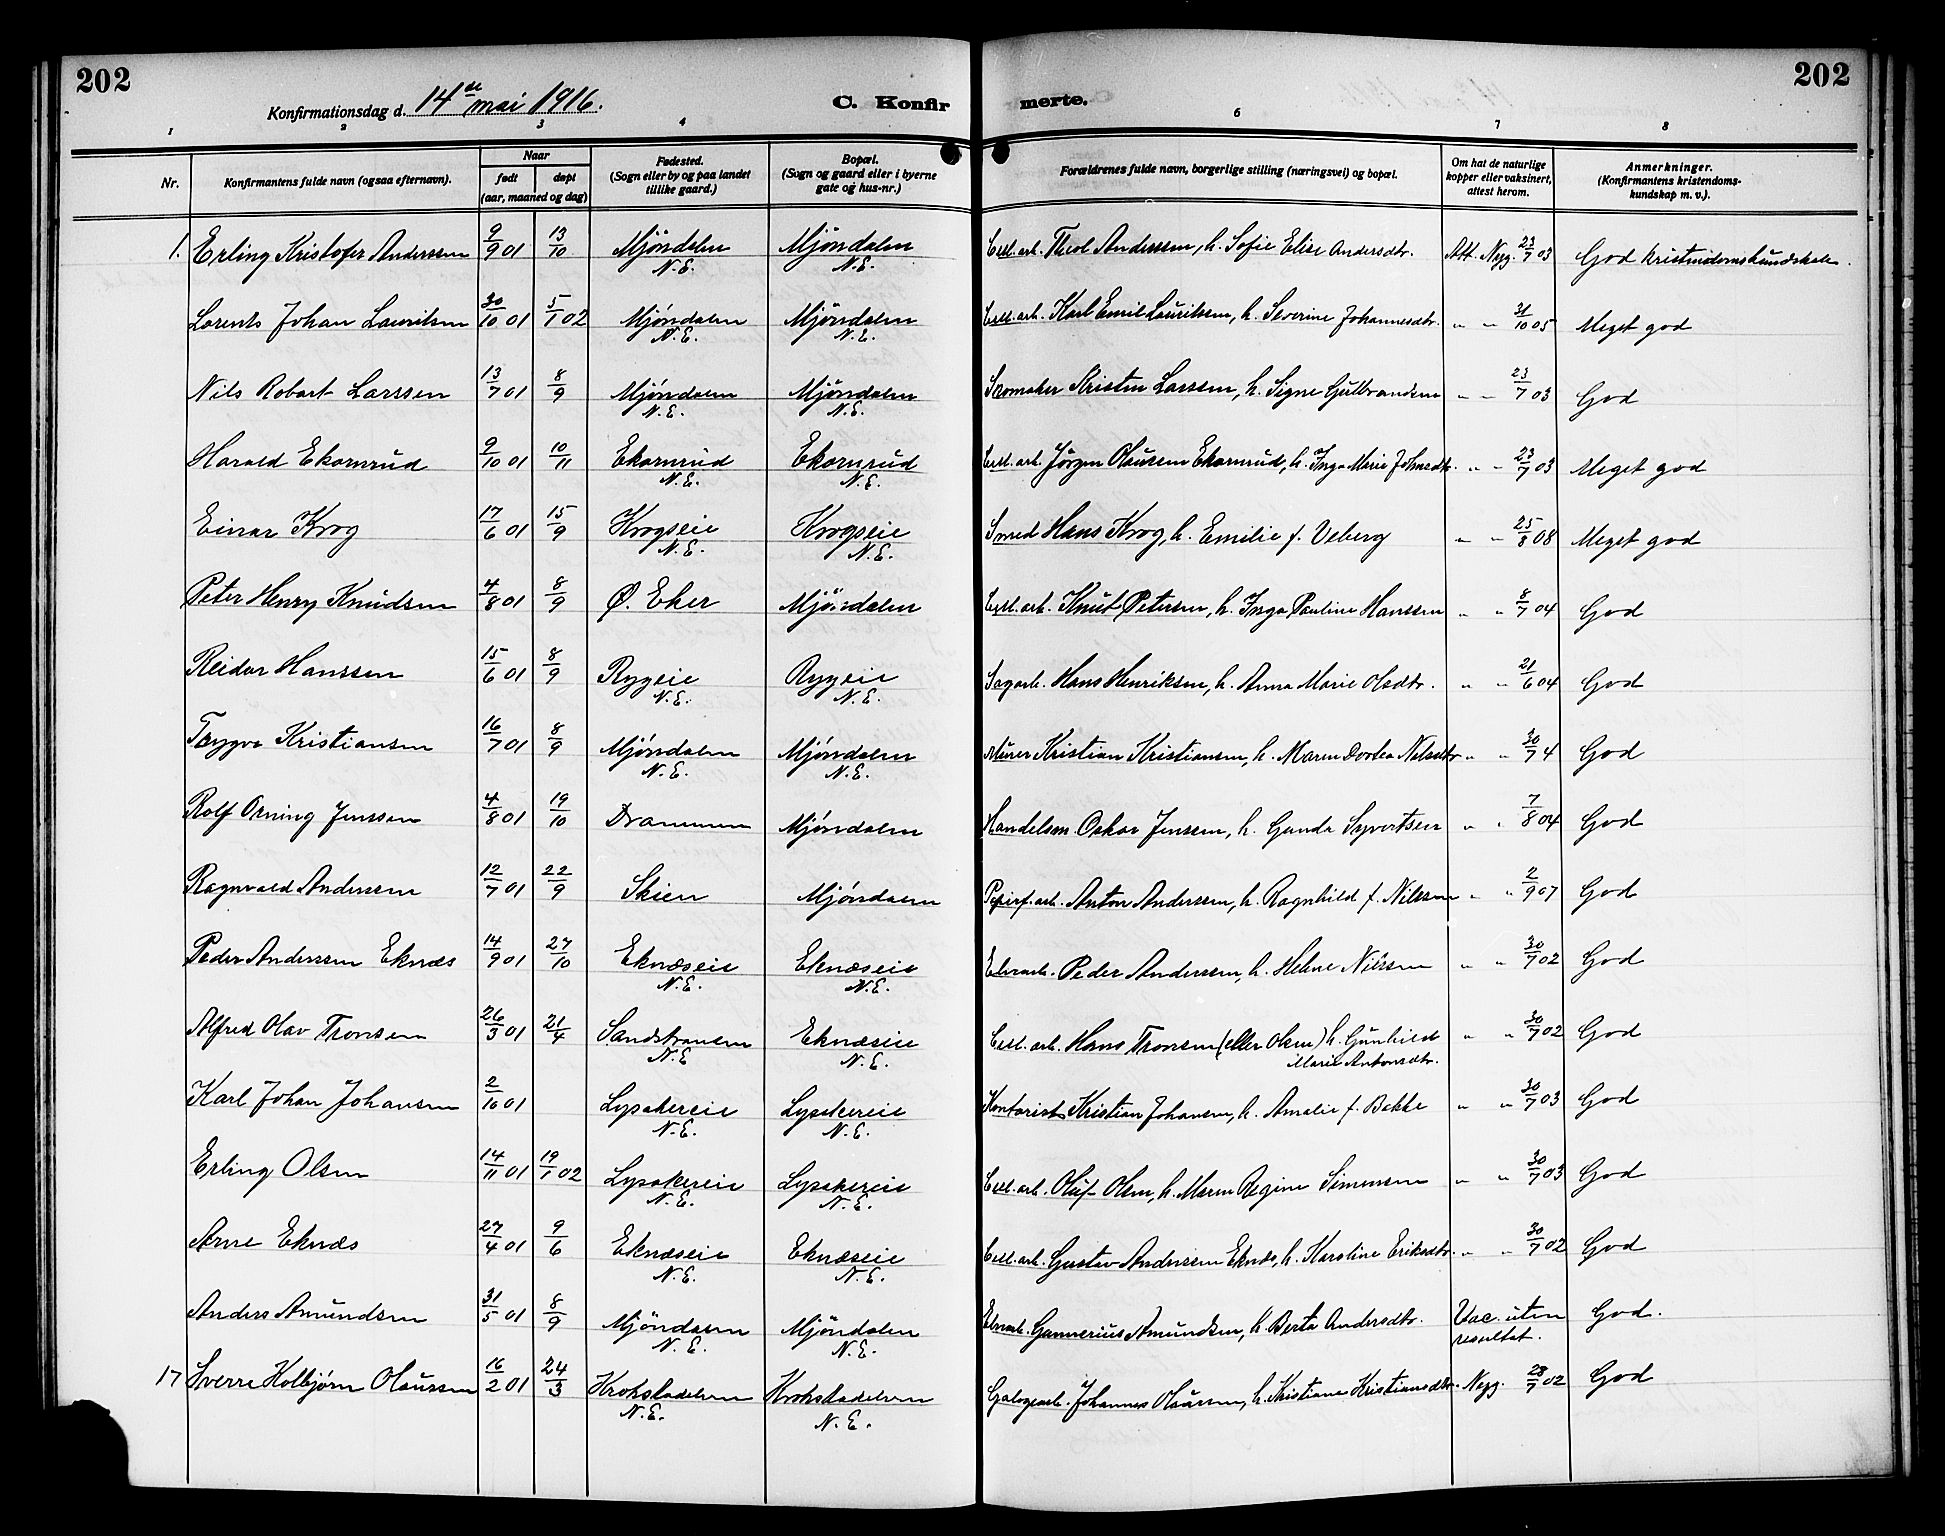 202
Konfirmationsdag d. 14de mai 1916.
C. Konfir
merte.
202
1 2 3 4 6 7 8
Nr.
Konfirmantens fulde navn (ogsaa efternavn).
Naar
født døpt
(aar, maaned og dag)
Fødested.
(Sogn eller by og paa landet
tillike gaard.)
Bopæl.
(Sogn og gaard eller i byerne
gate og hus-nr.)
Forældrenes fulde navn, borgerlige stilling (næringsvei) og bopæl.
Om hat de naturlige
kopper eller vaksinert,
attest herom.
Anmerkninger.
(Konfirmantens kristendoms-
kundskap m. v.).
1. Erling Kristofer Anderssen 9/9 01 13/10 Mjöndalen N.E. Mjöndalen N.E. Cell. arb. Theol Anderssen, h. Sofie Elise Andersdtr. Att. Nyg. 23/7 03 God kristendomskundskab.
Lorents Johan Lauritsen 30/10 01 5/1 02 Mjöndalen N.E. Mjöndalen N.E. Cell. arb. Karl Emil Lauritsen, h. Severine Johannesdtr. " " 31/10 05 Meget god
Nils Robart Larssen 13/7 01 8/9 Mjöndalen N.E. Mjöndalen N.E. Skomaker Kristen Larssen, h. Signe Gulbrandsen " " 23/7 03 God
Harald Ekornrud 9/10 01 10/11 Ekornrud N.E. Ekornrud N.E. Cell. arb. Jörgen Olaussen Ekornrud, h. Inga Marie Johnsdtr. " " 23/7 03 Meget god
Einar Krog 17/6 01 15/9 Krogseie N.E. Krogseie N.E. Smed Hans Krog, h. Emilie f. Veberg " " 25/8 08 Meget god
Peter Henry Knudsen 4/8 01 8/9 Ø. Eker Mjöndalen Cell. arb. Knut Petersen, h. Inga Pauline Hanssen " " 8/7 04 God
Reidar Hanssen 15/6 01 8/9 Rygeie N.E. Rygeie N.E. Sagarb. Hans Henriksen, h. Anna Marie Olsdtr. " " 21/6 04 God
Trygve Kristiansen 16/7 01 8/9 Mjöndalen N.E. Mjöndalen N.E. Murer Kristian Kristiansen, h. Maren Dorthea Nilsdtr " " 30/7 4 God
Rolf Orning Jenssen 4/8 01 19/10 Drammen Mjöndalen Handelsm. Oskar Jenssen, h. Gunda Syvertsen " " 7/8 04 God
Ragnvald Anderssen 12/7 01 22/9 Skien Mjöndalen Papirf. arb. Anton Anderssen, h. Ragnhild f. Nilssen " " 2/9 07 God
Peder Anderssen Eknæs 14/9 01 27/10 Eknæseie N.E. Eknæseie N.E. Elvearb. Peder Anderssen, h. Helene Nilssen " " 30/7 02 God
Alfred Olav Tronsen 26/3 01 21/4 Sandstranden N.E. Eknæseie N.E. Cell. arb. Hans Tronsen (eller Olsen) h. Gunhild Marie Antonsdtr. " " 30/7 02 God
Karl Johan Johansen 2/10 01 Lysakereie N.E. Lysakereie N.E. Kontorist Kristian Johansen, h. Amalie f. Bakke " " 30/7 03 God
Erling Olsen 14/11 01 19/1 02 Lysakereie N.E. Lysakereie N.E. Cell. arb. Oluf Olsen, h. Maren Regine Simensen " " 30/7 03 God
Arne Eknæs 27/4 01 9/6 Eknæseie N.E. Eknæseie N.E. Cell. arb. Gustav Anderssen Eknæs, h. Karoline Eriksdtr. " " 30/7 02 God
Anders Amundsen 31/5 01 8/9 Mjöndalen N.E. Mjöndalen N.E. Elvearb. Gunnerius Amundsen, h. Berta Andersdtr. Vac. uten resultat. God.
17 Sverre Kolbjørn Olaussen 16/2 01 24/3 Krokstadelven N.E. Krokstadelven N.E. Johannes Olaussen, h. Kristiane Kristiansdtr. Nyg. 28/7 02 God